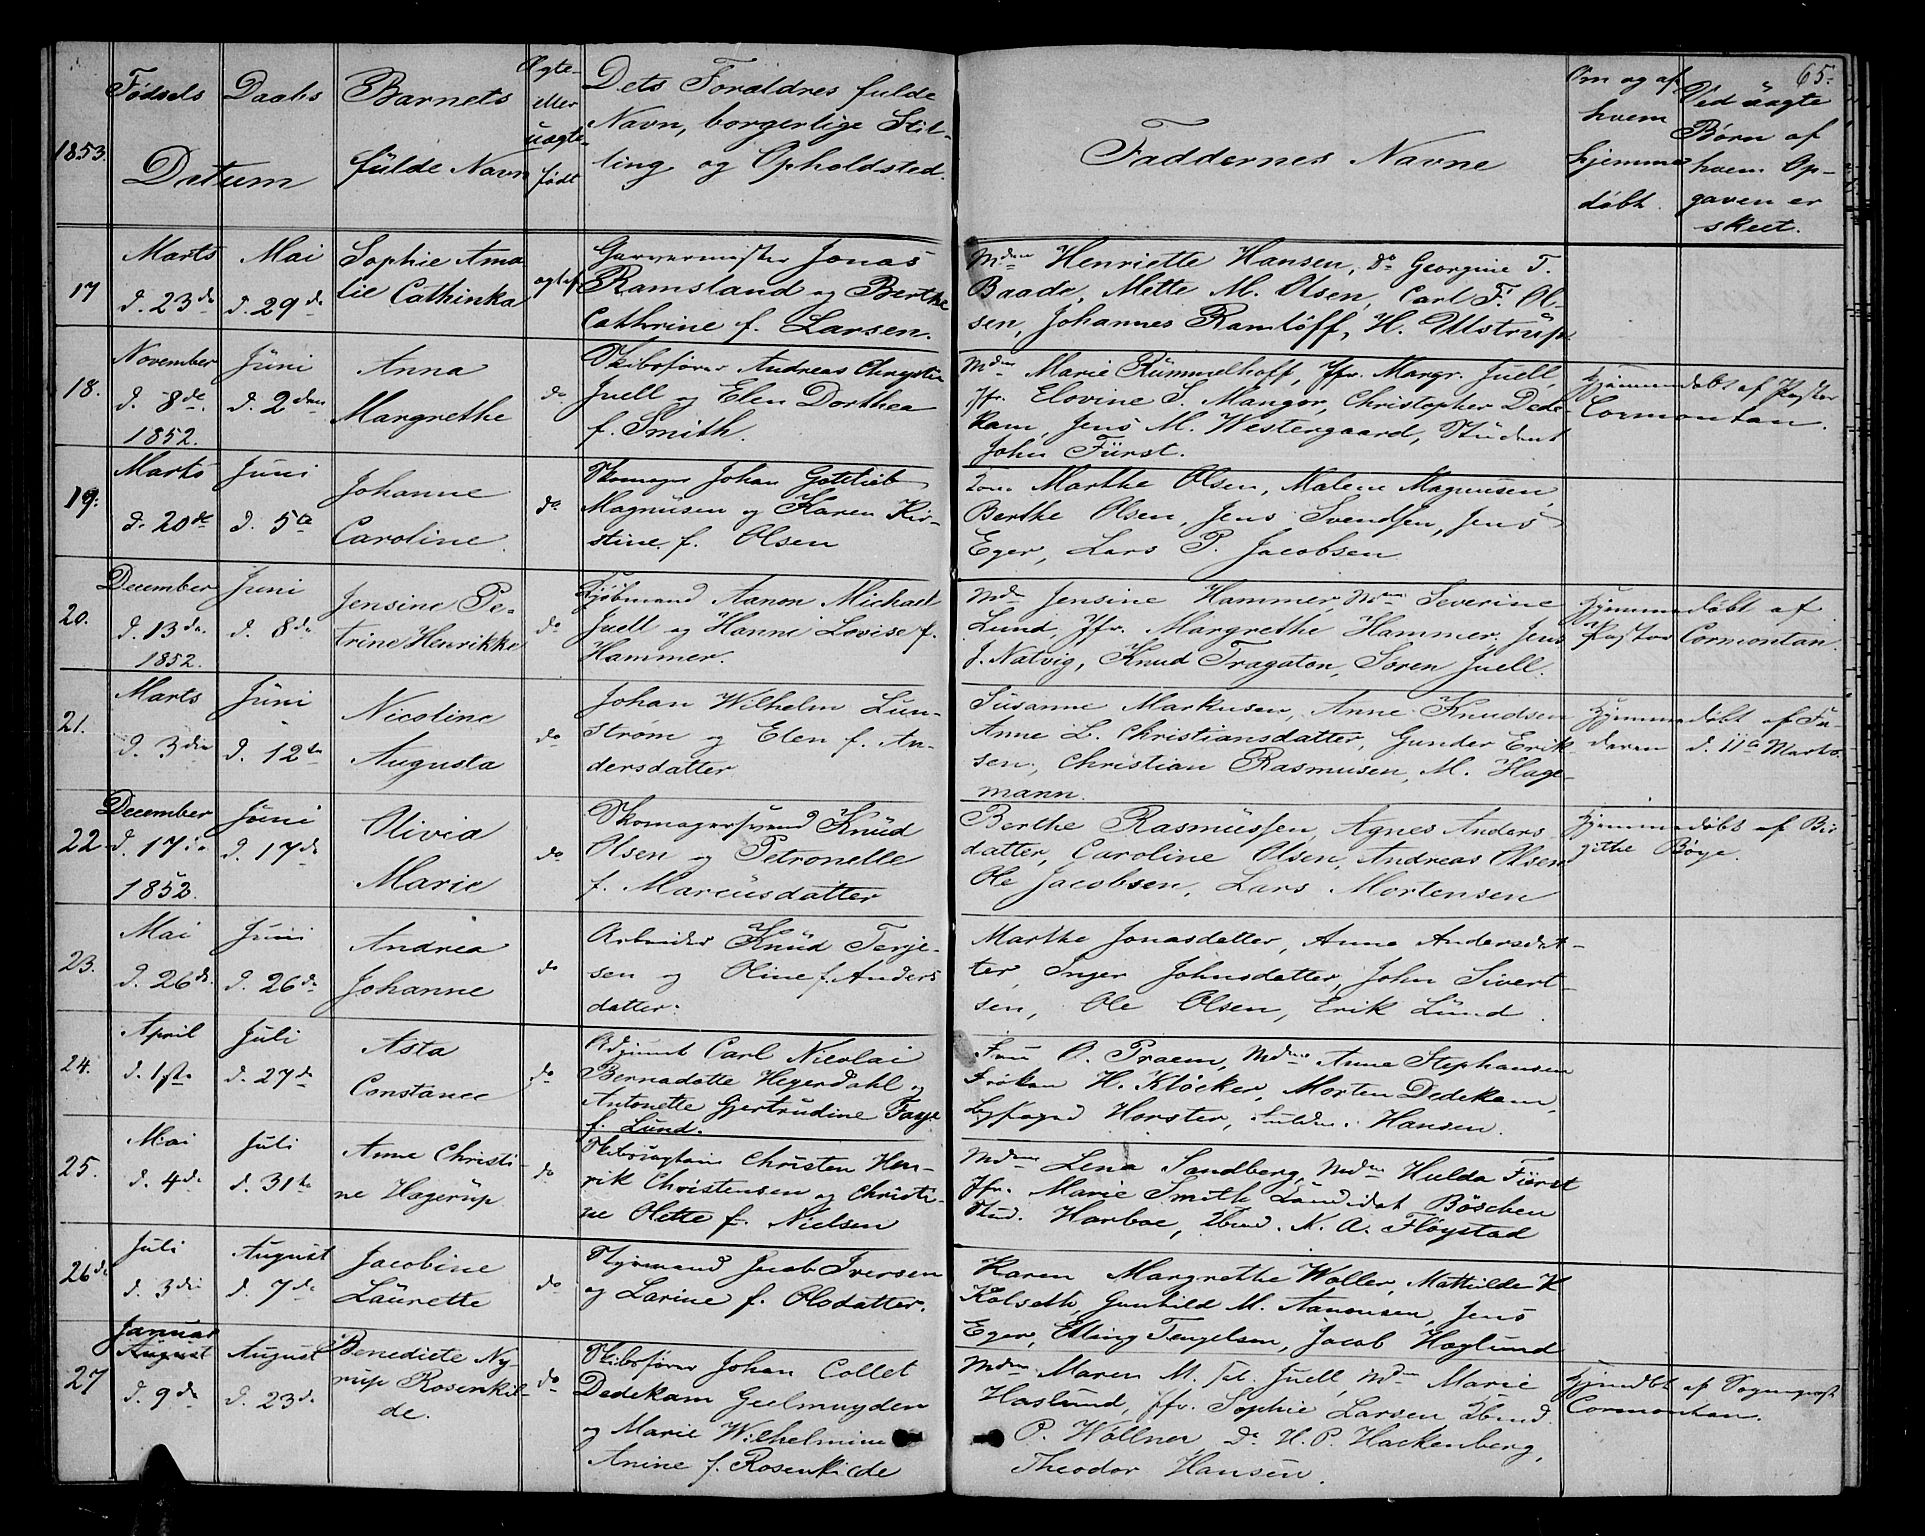 65.
1853.
Fødsels Daabs
Datum
Barnets
fulde Navn
Ægte-
eller
uægte-
født
Dets Forældres fulde
Navn, borgerlige Stil-
ling og Opholdsted.
Faddernes Navne
Om og af
hvem
hjemme
døbt.
Ved uægte
Børn af
hvem Op-
gaven er
skeet.
17
Marts
d. 23de
Mai
d. 29de
Sophie Ama
lie Cathinka
ægtef
Garvermester Jonas
Ramsland og Berthe
Cathrine f. Larsen.
Mdm Henriette Hansen, Do Georgine T.
Baade, Mette M. Olsen, Carl F. Ol-
sen, Johannes Ramløff, H. Ulstrup
18.
November
d. 8de
1852.
Juni
d. 2den
Anna
Margrethe
do
Skibsfører Andreas Chrystie
Juell og Elen Dorthea
f. Smith.
Mdm Marie Rummelhoff, Jfr. Margr. Juell,
Jfr. Elovine S. Mangor, Christopher Dede-
kam, Jens M. Westergaard, Student
John Fürst.
Hjemmedøbt af Pastor
Cormontan.
19.
Marts
d. 20de
Juni
d. 5te
Johanne
Caroline.
do
Skomager Johan Gottlieb
Magnusen og Karen Kir-
stine f. Olsen
Marthe Olsen, Malene Magnusen,
Berthe Olsen, Jens Svendsen, Jens
Eger, Lars P. Jacobsen
20.
December
d. 13de
1852.
Juni
d. 8de
Jensine Pe-
trine Henrikke
do
Kjøbmand Aanon Michael
Juell og Hanne Lovise f.
Hammer.
Mdm Jensine Hammer, Mdm Severine
Lund, Jfr. Margrethe Hammer, Jens
J. Natvig, Knud Tragaton, Søren Juell.
Hjemmedøbt af
Pastor Cormontan.
21.
Marts
d. 3die
Juni
d. 12te
Nicoline
Augusta
do
Johan Wilhelm Lun-
strøm og Elen f. An-
dersdatter
Susanne Markusen, Anne Knudsen
Anne L. Christiansdatter, Gunder Erik-
sen, Christian Rasmusen, M. Hage-
mann.
Hjemmedøbt af Fa-
deren d. 11te Marts.
22.
December
d. 17de
1852.
Juni
d. 17de
Olivia
Marie
do
Skomagersvend Knud
Olsen og Petronelle
f. Marcusdatter
Berthe Rasmussen, Agnes Anders
datter, Caroline Olsen, Andreas Olsen
Ole Jacobsen, Lars Mortensen
Hjemmedøbt af Bir
githe Bøye.
23.
Mai
d. 26de
Juni
d. 26de
Andrea
Johanne
do
Arbeider Knud Terje-
sen og Oline f. Anders
datter.
Marthe Jonasdatter, Anne Andersdat-
ter, Inger Johnsdatter, John Sivert-
sen, Ole Olsen, Erik Lund.
24.
April
d. 1ste
Juli
d. 27de
Asta
Constance
do
Adjunct Carl Nicolai
Bernadotte Hegerdahl og
Antonette Gjertrudine Faye
f. Lund.
Fru O. Praem, Mdm Anne Stephansen
Frøken H. Kløcker, Morten Dedekam,
Byfoged Horster, Hansen.
25.
Mai
d. 4de
Juli
d. 31te
Anne Christi-
ne Hagerup
do
Skibscaptain Christen Hen-
rik Christensen og Christi-
ne Olette f. Nielsen
Mdm Lena Sandberg, Mdm Hulda Fürst
Jfr. Marie Smith Candidat Bøschen
Stud. Harboe, N. A. Fløystad
26de
Juli
d. 3die
August
d. 7de
Jacobine
Laurette
do
Styrmand Jacob Iversen
og Larine f. Olsdatter.
Karen Margrethe Woller, Mathilde K
Kolseth, Gunhild M. Aanonsen, Jens
Eger, Elling Tengelsen, Jacob Hoglund
27
Januar
August
d. 9de
August
d. 23de
Benedicte Ny-
rup Rosenkil-
de.
do
Skibsfører Johan Collet
Dedekam Geelmuyden
og Marie Wilhelmine
Anine f. Rosenkilde
Mdm Maren M. Juell, Mdm Marie
Haslund, Jfr. Sophie Larsen
P. Wollner, Do H. P. Hackenberg,
Theodor Hansen.
Hjemdbt af Sognepræst
Cormontan.